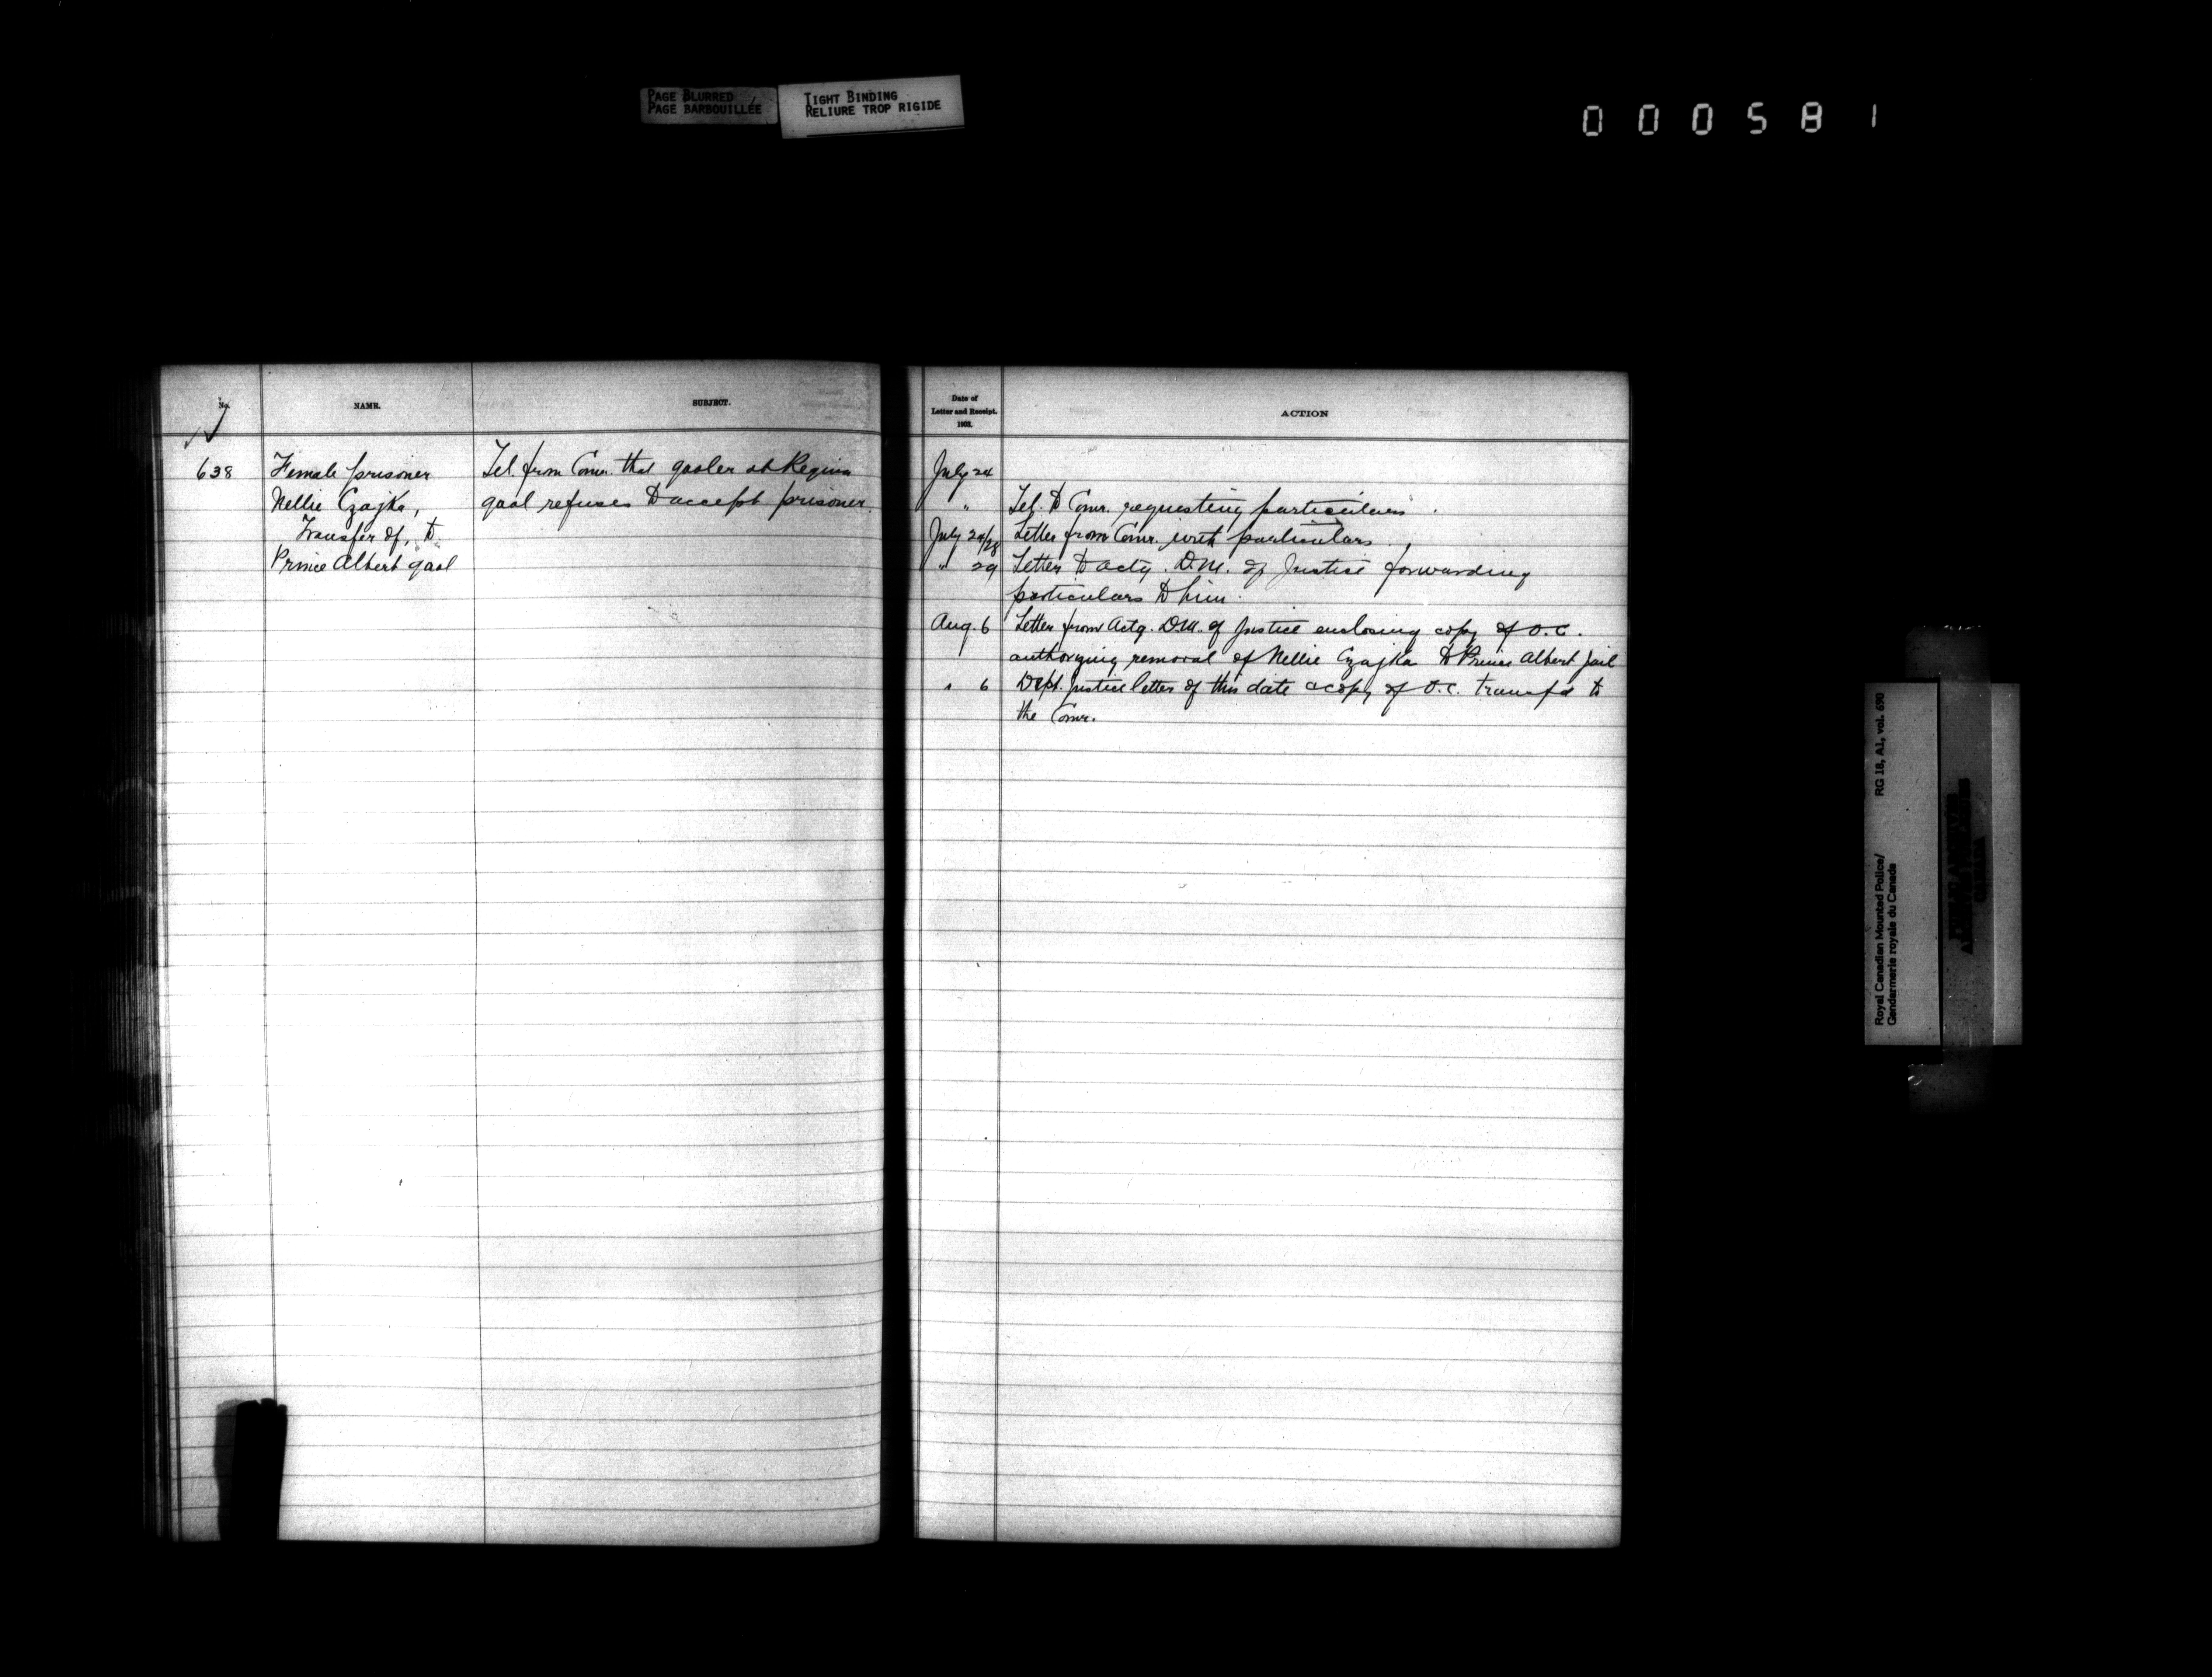 PAGE BLURRED
PAGE BARBOUILLÉE
TIGHT BINDING
RELIURE TROP RIGIDE
000581
No.
NAME.
SUBJECT.
638
Female prisoner
Nellie Czajka,
Transfer of, to
Prince Albert gaol
Tel. from Comr. that gaoler at Regina
gaol refuses to accept prisoner.
Date of
Letter and Receipt.
1903.
ACTION
July 24
" Tel. to Comr. requesting particulars.
July 24/28 Letter from Comr. with particulars.
" 29 Letter to actg. D.M. of Justice forwarding
particulars to him.
Aug. 6 Letter from Actg. D.M. of Justice enclosing copy of O.C.
authorizing removal of Nellie Czajka to Prince Albert jail
" 6 Dept. Justice letter of this date & copy of O.C. transfd to
the Comr.
RG 18, A1, vol. 690
Royal Canadian Mounted Police/
Gendarmerie royale du Canada